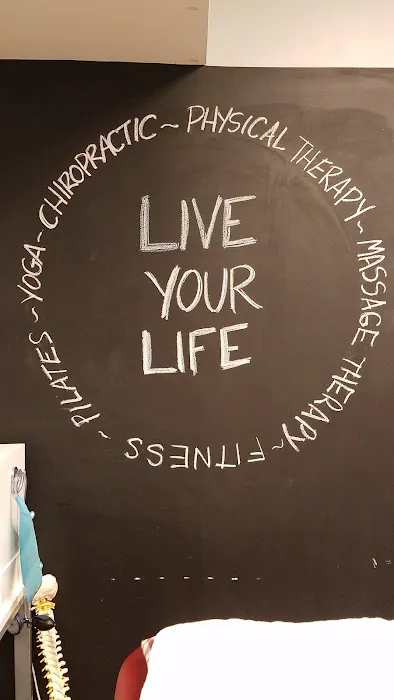 CHIROPRACTIC ~ PHYSICAL THERAPY ~ MASSAGE THERAPY ~ FITNESS ~ PILATES ~ YOGA ~
LIVE
YOUR
LIFE